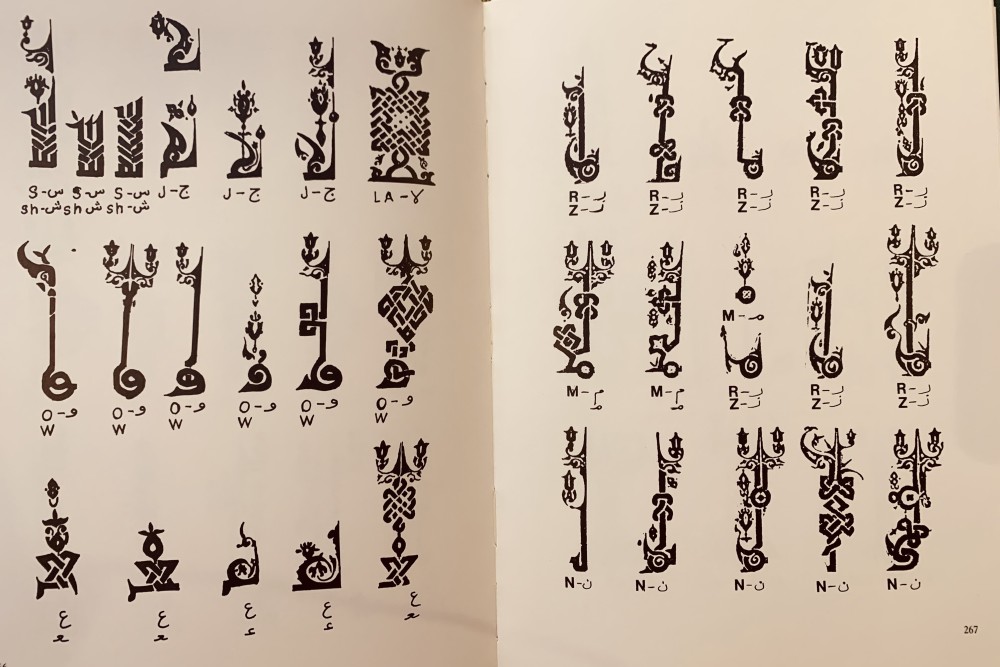 S-س S-س S-س J-ج J-ج J-ج LA-لا
sh-ش sh-ش sh-ش
O-و O-و O-و O-و O-و O-و
W W W W W W
ع ع ع ع ع
R-ر R-ر R-ر R-ر R-ر
Z-ز Z-ز Z-ز Z-ز Z-ز
M-م
M-م M-م R-ر R-ر R-ر
Z-ز Z-ز Z-ز
N-ن N-ن N-ن N-ن N-ن
267